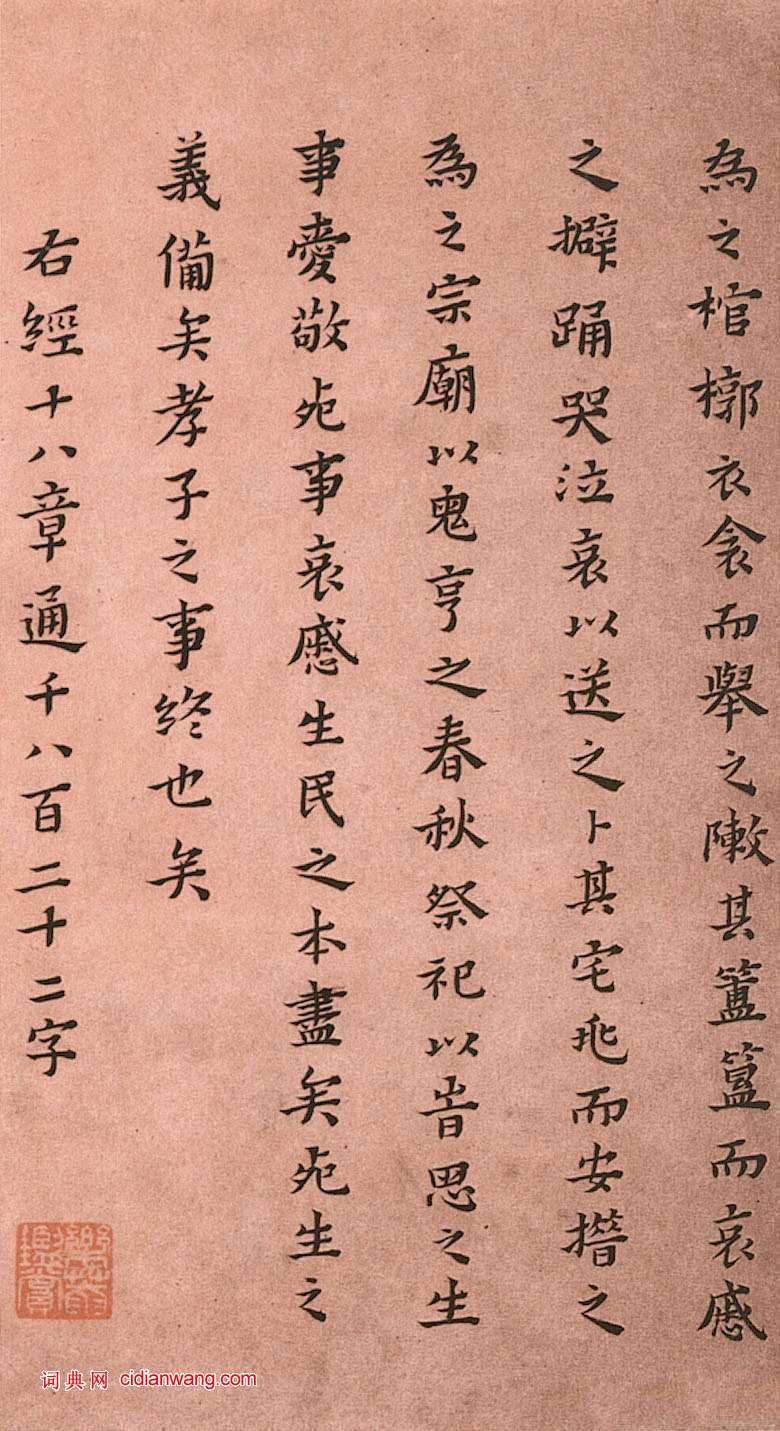 為之棺槨衣衾而舉之陳其簠簋而哀慼
之擗踊哭泣哀以送之卜其宅兆而安措之
為之宗廟以鬼亨之春秋祭祀以旹思之生
事愛敬死事哀慼生民之本盡矣死生之
義備矣孝子之事終也矣
右經十八章通千八百二十二字
词典网 cidianwang.com